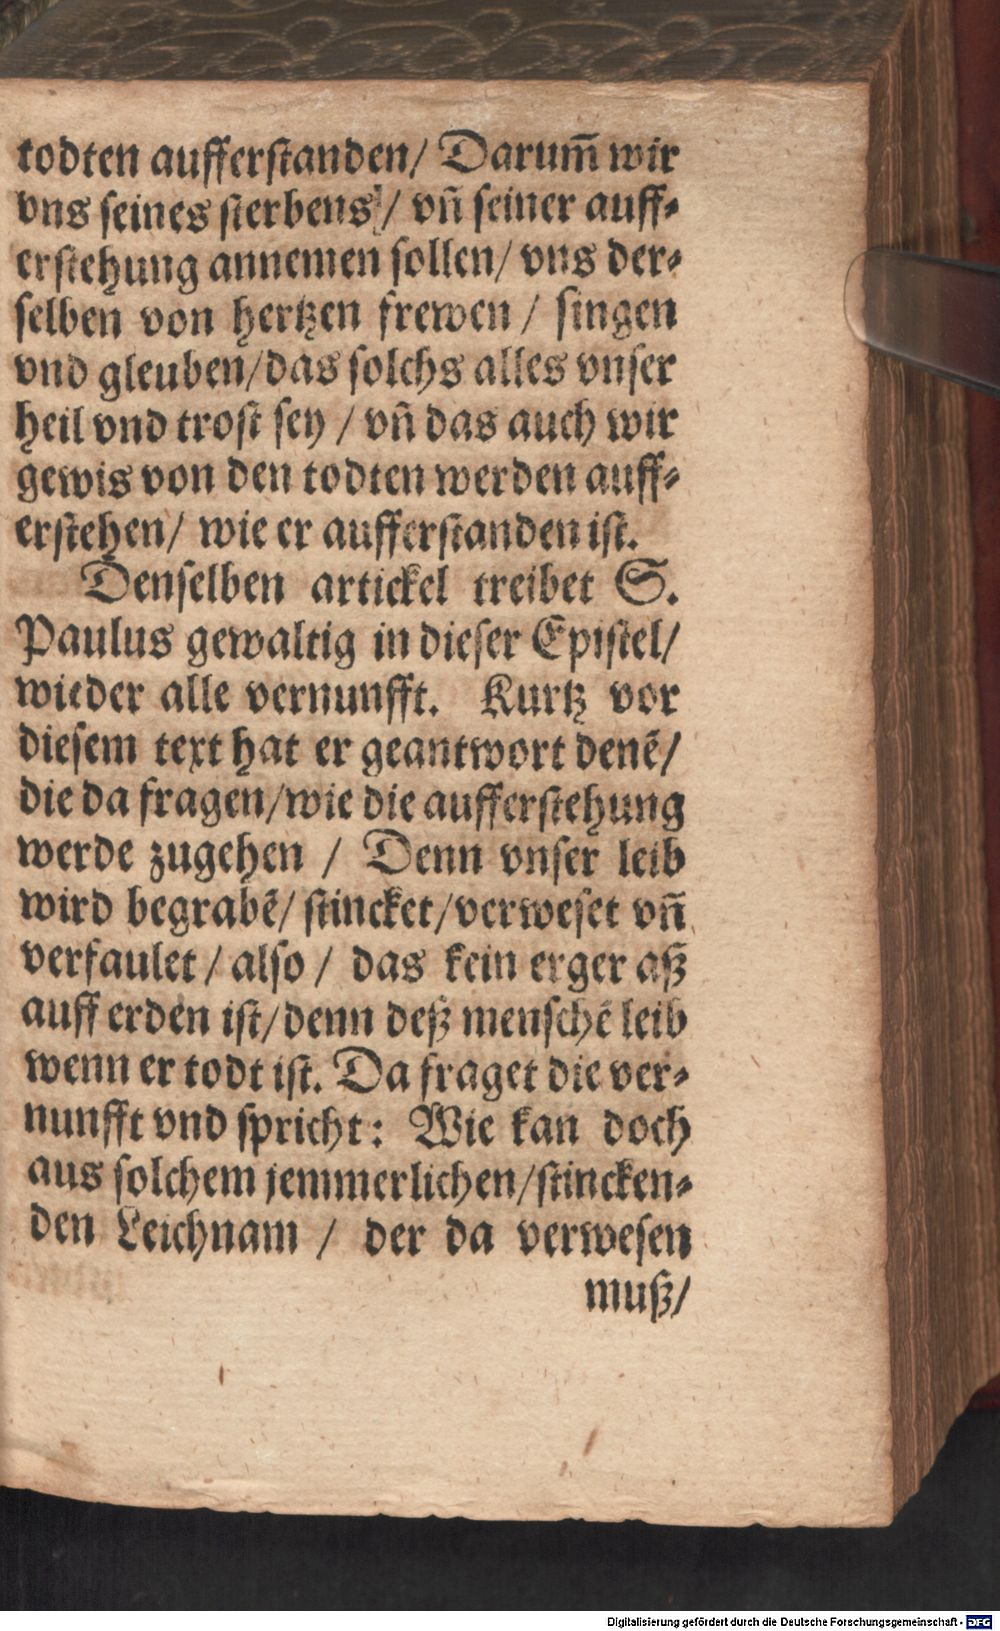 todten aufferstanden/ Darum̄ wir
vns seines sterbens/ vn̄ seiner auff⸗
erstehung annemen sollen/ vns der⸗
selben von hertzen frewen / singen
vnd gleuben/das solchs alles vnser
heil vnd trost sey / vn̄ das auch wir
gewis von den todten werden auff⸗
erstehen/ wie er aufferstanden ist.
Denselben artickel treibet S.
Paulus gewaltig in dieser Epistel/
wieder alle vernunfft. Kurtz vor
diesem text hat er geantwort denē/
die da fragen/wie die aufferstehung
werde zugehen / Denn vnser leib
wird begrabē/ stincket/verweset vn̄
verfaulet / also / das kein erger aß
auff erden ist/denn deß menschē leib
wenn er todt ist. Da fraget die ver⸗
nunfft vnd spricht: Wie kan doch
aus solchem jemmerlichen/stincken⸗
den Leichnam / der da verwesen
muß/
Digitalisierung gefördert durch die Deutsche Forschungsgemeinschaft - DFG